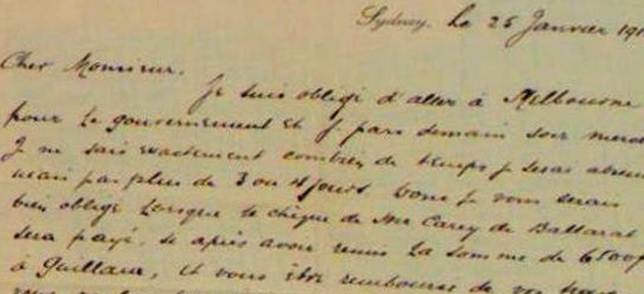 Sydney. le 25 Janvier 191
Cher Monsieur.
Je suis obligé d'aller à Melbourne
pour le gouvernement et je pars demain soir
Je ne sais exactement combien de temps je serai absent
mais pas plus de 3 ou 4 jours. Donc je vous serais
bien obligé lorsque le chèque de Mr Carey de Ballarat
sera payé, de après avoir remis la somme de 6500f
à Guillaux, et vous être remboursé de vos